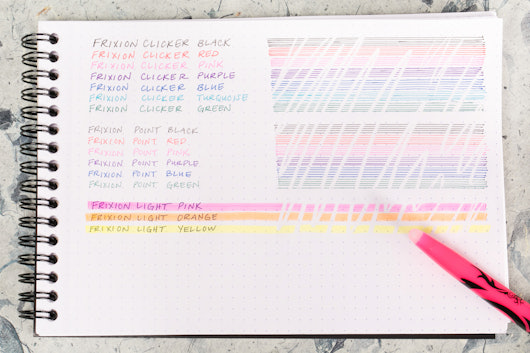 FRIXION CLICKER BLACK
FRIXION CLICKER RED
FRIXION CLICKER PINK
FRIXION CLICKER PURPLE
FRIXION CLICKER BLUE
FRIXION CLICKER TURQUOISE
FRIXION CLICKER GREEN
FRIXION POINT BLACK
FRIXION POINT RED
FRIXION POINT PINK
FRIXION POINT PURPLE
FRIXION POINT BLUE
FRIXION POINT GREEN
FRIXION LIGHT PINK
FRIXION LIGHT ORANGE
FRIXION LIGHT YELLOW